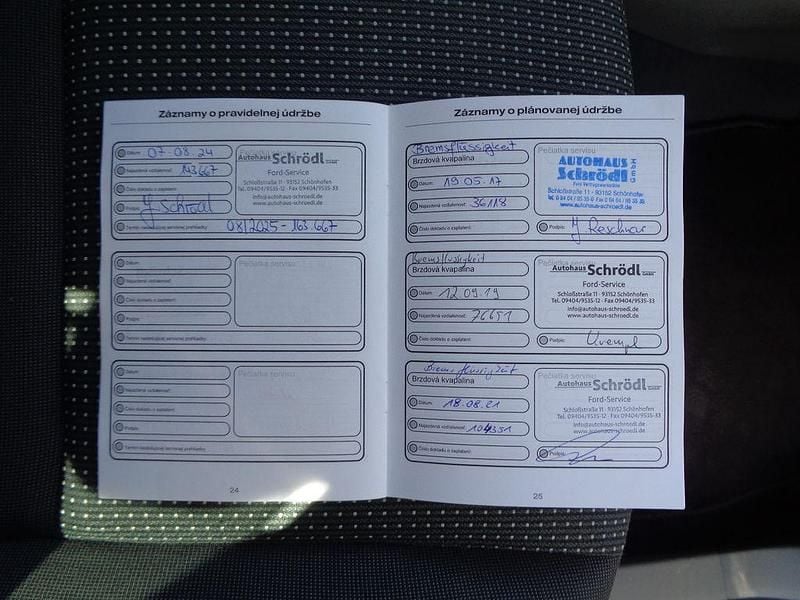 Záznamy o pravidelnej údržbe
Dátum: 07.08.24
Najazdená vzdialenosť: 143667
Číslo dokladu o zaplatení:
Podpis:
Termín nasledujúcej servisnej prehliadky: 08/2025 - 163.667
Pečiatka servisu
Autohaus Schrödl GmbH
Ford-Service
Schloßstraße 11 · 93152 Schönhofen
Tel. 09404/9535-12 · Fax 09404/9535-33
info@autohaus-schroedl.de
www.autohaus-schroedl.de
Dátum:
Najazdená vzdialenosť:
Číslo dokladu o zaplatení:
Podpis:
Termín nasledujúcej servisnej prehliadky:
Pečiatka servisu
Dátum:
Najazdená vzdialenosť:
Číslo dokladu o zaplatení:
Podpis:
Termín nasledujúcej servisnej prehliadky:
Pečiatka servisu
24
Záznamy o plánovanej údržbe
Bremsflüssigkeit
Brzdová kvapalina
Dátum: 19.05.17
Najazdená vzdialenosť: 36118
Číslo dokladu o zaplatení:
Pečiatka servisu
AUTOHAUS
Schrödl GmbH
Ford Vertragswerkstätte
Schloßstraße 11 - 93152 Schönhofen
www.autohaus-schroedl.de
Podpis:
Bremsflüssigkeit
Brzdová kvapalina
Dátum: 12.09.19
Najazdená vzdialenosť: 76651
Číslo dokladu o zaplatení:
Autohaus Schrödl GmbH
Ford-Service
Schloßstraße 11 · 93152 Schönhofen
Tel. 09404/9535-12 · Fax 09404/9535-33
info@autohaus-schroedl.de
www.autohaus-schroedl.de
Podpis:
Bremsflüssigkeit
Brzdová kvapalina
Dátum: 18.08.21
Najazdená vzdialenosť: 104351
Číslo dokladu o zaplatení:
Pečiatka servisu
Autohaus Schrödl GmbH
Ford-Service
Schloßstraße 11 · 93152 Schönhofen
Tel. 09404/9535-12 · Fax 09404/9535-33
info@autohaus-schroedl.de
www.autohaus-schroedl.de
Podpis:
25